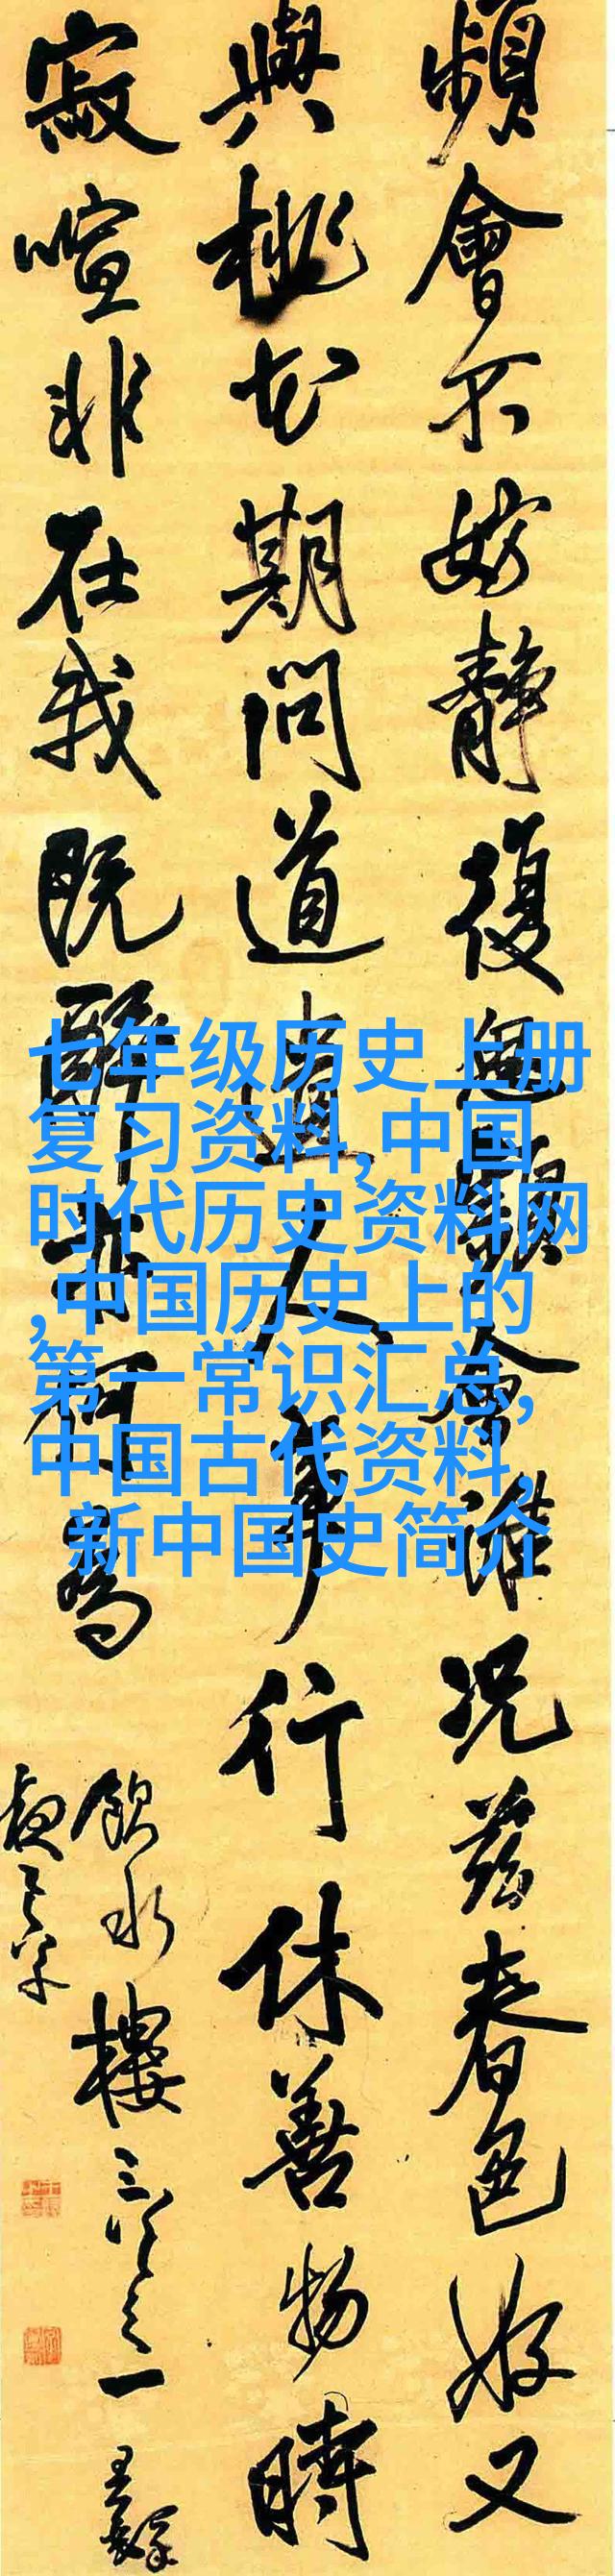 頻會不妨靜復思頻會誰況茲春色好又
與桃花期問道遺人事行休善物時
寂喧非在我既醉亦何為
銀水樓三首之一
七年级历史上册
复习资料,中国
时代历史资料网
,中国历史上的
第一常识汇总,
中国古代资料,
新中国史简介